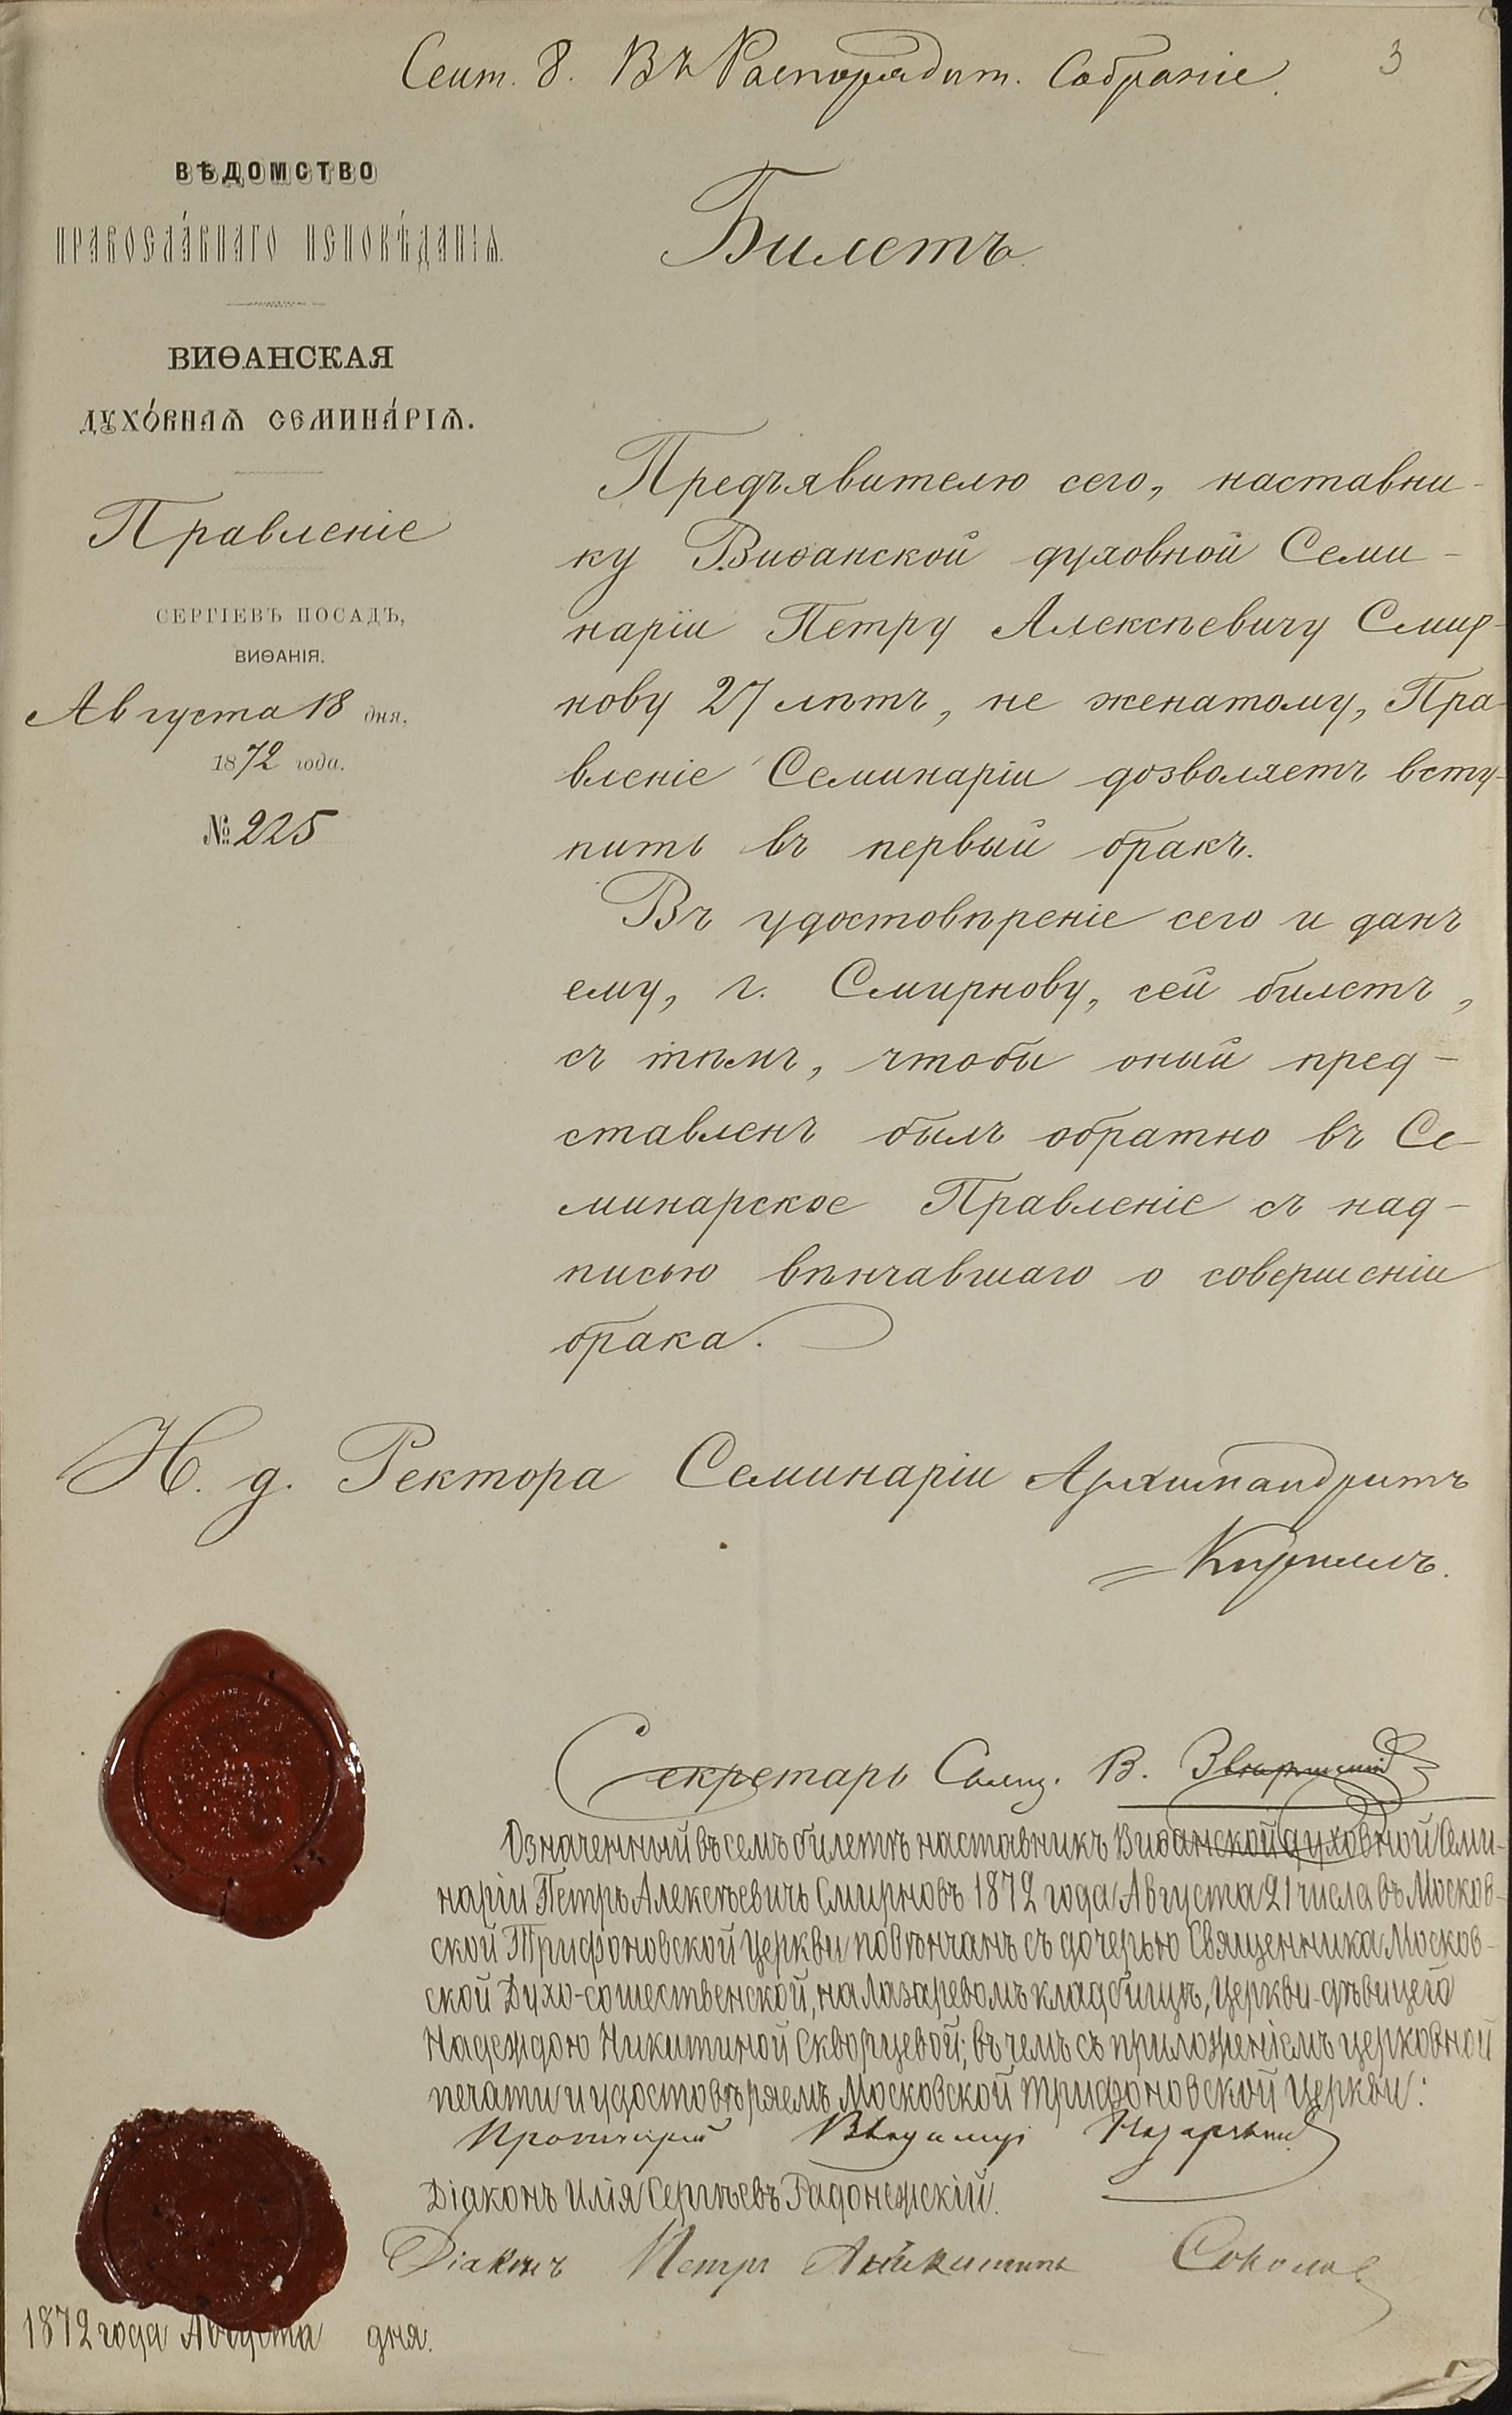 Сент. 8. Въ Распорядит. Собраніе.
3
ВѢДОМСТВО
ПРАВОСЛА́ВНАГО ИСПОВѢ́ДАНІѦ.
ВИѲАНСКАЯ
ДУХО́ВНАѦ СЕМИНА́РІѦ.
Правленіе
СЕРГІЕВЪ ПОСАДЪ,
ВИѲАНІЯ.
Августа 18 дня,
1872 года.
№ 225
Билетъ
Предъявителю сего, наставни-
ку Виѳанской духовной Семи-
наріи Петру Алексѣевичу Смир-
нову 27 лѣтъ, не женатому, Пра-
вленіе Семинаріи дозволяетъ всту-
пить въ первый бракъ.
Въ удостовѣреніе сего и данъ
ему, г. Смирнову, сей билетъ,
съ тѣмъ, чтобы оный пред-
ставленъ былъ обратно въ Се-
минарское Правленіе съ над-
писью вѣнчавшаго о совершеніи
брака.
И. д. Ректора Семинаріи Архимандритъ
Кириллъ.
Секретарь Семин. В.
Означенный въ семъ билетѣ наставникъ Виѳанской духовной Семи-
наріи Петръ Алексѣевичъ Смирновъ 1872 года Августа 21 числа въ Москов-
ской Трифоновской церкви повѣнчанъ съ дочерью Священника Москов-
ской Духо-сошественской, на Лазаревомъ кладбищѣ, церкви-дѣвицею
Надеждою Никитиной Скворцевой; въ чемъ съ приложеніемъ церковной
печати и удостовѣряемъ Московской Трифоновской церкви:
Протоіерей Владимір Назаревскій
Діаконъ Илія Сергѣевъ Радонежскій.
Діаконъ Петръ Аникитинъ Соколов
1872 года Августа дня.